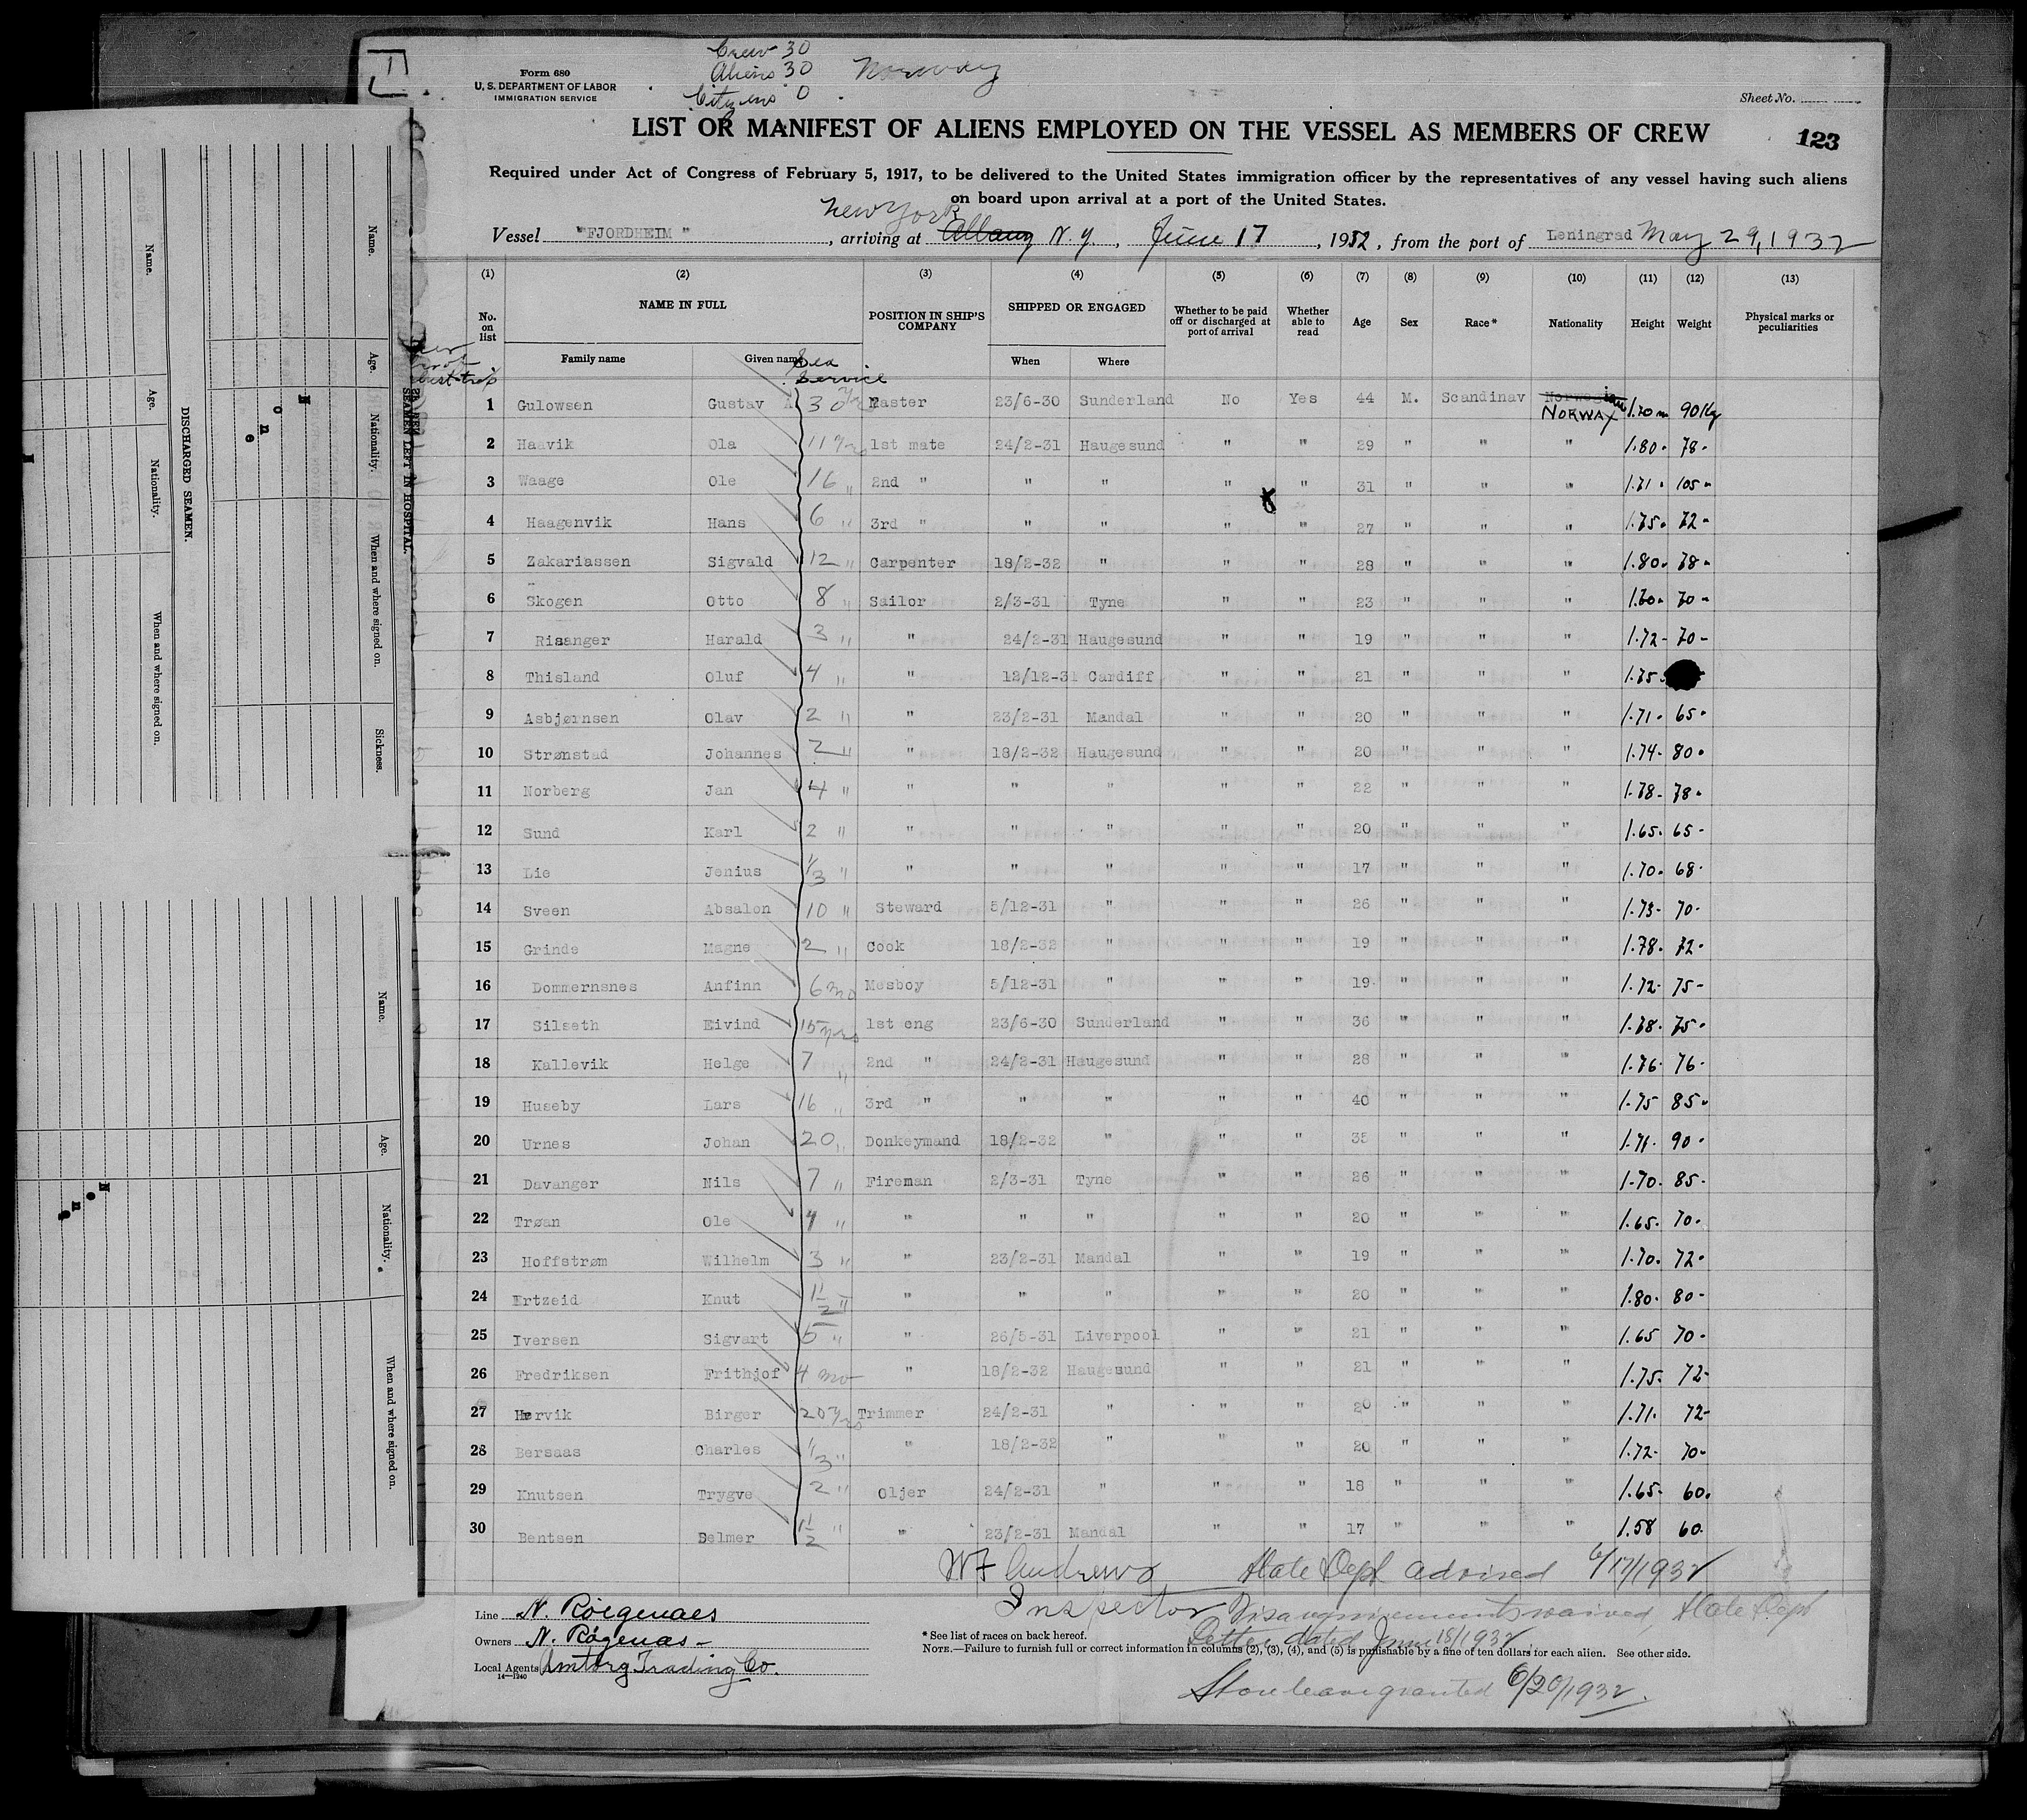 1
Crew 30
Aliens 30
Citizens 0
Norway
Form 680
U. S. DEPARTMENT OF LABOR
IMMIGRATION SERVICE
Sheet No.
LIST OR MANIFEST OF ALIENS EMPLOYED ON THE VESSEL AS MEMBERS OF CREW
123
Required under Act of Congress of February 5, 1917, to be delivered to the United States immigration officer by the representatives of any vessel having such aliens
on board upon arrival at a port of the United States.
New York
Vessel "FJORDHEIM", arriving at Albany N.Y., June 17, 1932, from the port of Leningrad May 29, 1932
(1) (2) (3) (4) (5) (6) (7) (8) (9) (10) (11) (12) (13)
No. on list NAME IN FULL POSITION IN SHIP'S COMPANY SHIPPED OR ENGAGED Whether to be paid off or discharged at port of arrival Whether able to read Age Sex Race* Nationality Height Weight Physical marks or peculiarities
Family name Given name When Where
Sea Service
1 Gulowsen Gustav A 30 yrs Master 23/6-30 Sunderland No Yes 44 M. Scandinav Norwegian NORWAY 1.70 m 90 Kg
2 Haavik Ola 11 yrs 1st mate 24/2-31 Haugesund " " 29 " " " 1.80 - 78 -
3 Waage Ole 16 " 2nd " " " " " 31 " " " 1.71 - 105 -
4 Haagenvik Hans 6 " 3rd " " " " " 27 " " " 1.75 - 72 -
5 Zakariassen Sigvald 12 " Carpenter 18/2-32 " " " 28 " " " 1.80 - 78 -
6 Skogen Otto 8 " Sailor 2/3-31 Tyne " " 23 " " " 1.70 - 70 -
7 Risanger Harald 3 " " 24/2-31 Haugesund " " 19 " " " 1.72 - 70 -
8 Thisland Oluf 4 " " 12/12-31 Cardiff " " 21 " " " 1.75
9 Asbjørnsen Olav 2 " " 23/2-31 Mandal " " 20 " " " 1.71 - 65 -
10 Strønstad Johannes 2 " " 18/2-32 Haugesund " " 20 " " " 1.74 - 80 -
11 Norberg Jan 4 " " " " " " 22 " " " 1.78 - 78 -
12 Sund Karl 2 " " " " " " 20 " " " 1.65 - 65 -
13 Lie Jenius 1/3 " " " " " " 17 " " " 1.70 - 68 -
14 Sveen Absalon 10 " Steward 5/12-31 " " " 26 " " " 1.73 - 70 -
15 Grinde Magne 2 " Cook 18/2-32 " " " 19 " " " 1.78 - 72 -
16 Dommernsnes Anfinn 6 mo Mesboy 5/12-31 " " " 19 " " " 1.72 - 75 -
17 Silseth Eivind 15 yrs 1st eng 23/6-30 Sunderland " " 36 " " " 1.78 - 75 -
18 Kallevik Helge 7 " 2nd " 24/2-31 Haugesund " " 28 " " " 1.76 - 76 -
19 Huseby Lars 16 " 3rd " " " " " 40 " " " 1.75 85 -
20 Urnes Johan 20 " Donkeymand 18/2-32 " " " 35 " " " 1.71 - 90 -
21 Davanger Nils 7 " Fireman 2/3-31 Tyne " " 26 " " " 1.70 - 85 -
22 Trøan Ole 4 " " " " " " 20 " " " 1.65 - 70 -
23 Hoffstrøm Wilhelm 3 " " 23/2-31 Mandal " " 19 " " " 1.70 - 72 -
24 Ertzeid Knut 1 1/2 " " " " " " 20 " " " 1.80 - 80 -
25 Iversen Sigvart 5 " " 26/5-31 Liverpool " " 21 " " " 1.65 70 -
26 Fredriksen Frithjof 4 mo " 18/2-32 Haugesund " " 21 " " " 1.75 - 72 -
27 Hervik Birger 20 yrs Trimmer 24/2-31 " " " 20 " " " 1.71 - 72 -
28 Bersaas Charles 1/3 " " 18/2-32 " " " 20 " " " 1.72 - 70 -
29 Knutsen Trygve 2 " Oljer 24/2-31 " " " 18 " " " 1.65 - 60 -
30 Bentsen Selmer 1 1/2 " " 23/2-31 Mandal " " 17 " " " 1.58 60
WF Andrews State Dept advised 6/17/1932
Inspector waived State Dept
Letter dated June 18/1932
Line N. Röegenaes
Owners N. Røgenæs -
Local Agents Amtorg Trading Co.
14—1240
* See list of races on back hereof.
NOTE.—Failure to furnish full or correct information in columns (2), (3), (4), and (5) is punishable by a fine of ten dollars for each alien. See other side.
Shore leave granted 6/20/1932.
ALIEN SEAMEN LEFT IN HOSPITAL.
Name. Age. Nationality. When and where signed on. Sickness.
None
DISCHARGED SEAMEN.
Name. Age. Nationality. When and where signed on.
Name. Age. Nationality. When and where signed on.
None